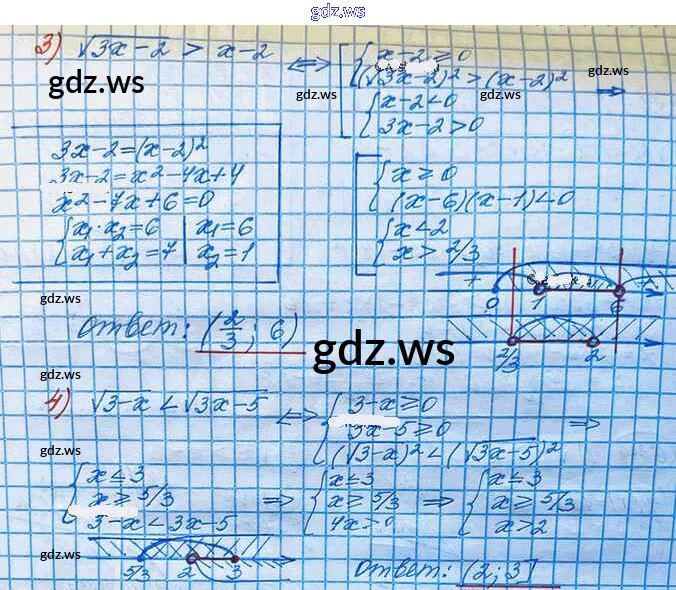 gdz.ws
3) √3x-2 > x-2 ⟺ [ { x-2 ≥ 0
(√3x-2)² > (x-2)²
{ x-2 < 0
3x-2 > 0 ⟹
gdz.ws
gdz.ws
gdz.ws
3x-2=(x-2)²
3x-2=x²-4x+4
x²-7x+6=0
{ x₁·x₂=6 | x₁=6
x₁+x₂=7 | x₂=1
[ { x ≥ 0
(x-6)(x-1)<0
{ x<2
x > 2/3
gdz.ws
+ +
0 1 6
2/3 2
Ответ: (2/3; 6)
gdz.ws
gdz.ws
gdz.ws
4) √3-x < √3x-5 ⟺ { 3-x ≥ 0
3x-5 ≥ 0 ⟹
(√3-x)² < (√3x-5)²
gdz.ws
gdz.ws
{ x ≤ 3
x ≥ 5/3
3-x < 3x-5
⟹ { x ≤ 3
x ≥ 5/3
⟹ { x ≤ 3
x ≥ 5/3
x > 2
gdz.ws
gdz.ws
5/3 2 3
Ответ: (2; 3]